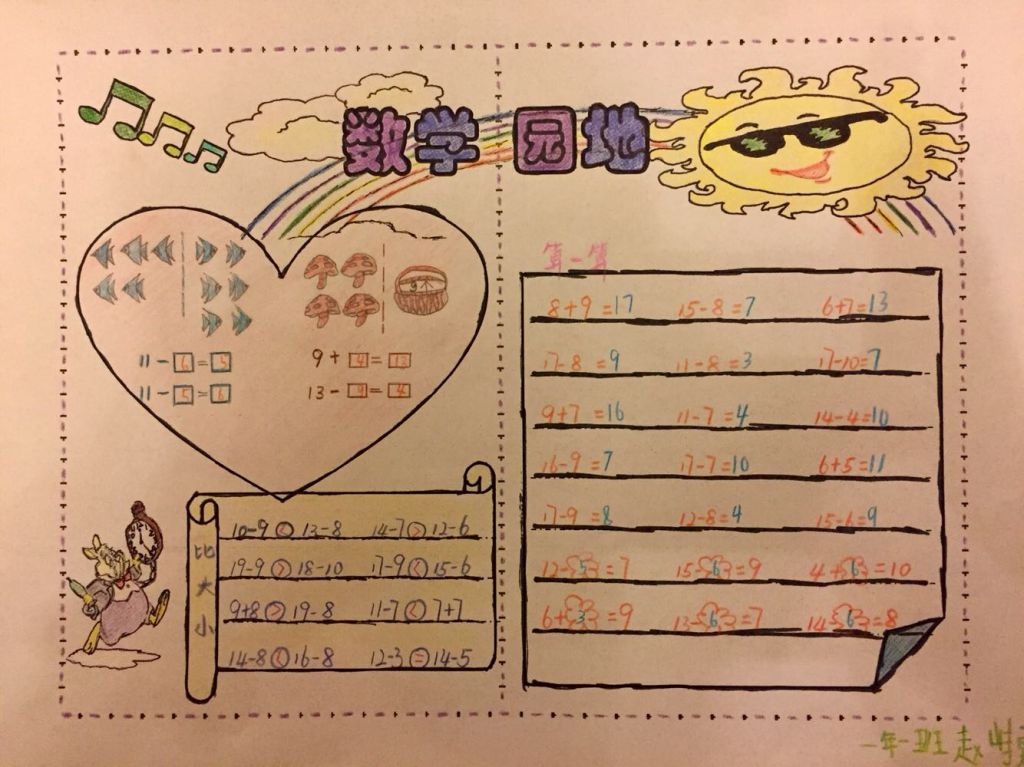 数学 园地
9个
11-6=5
9+4=13
11-5=6
13-9=4
比大小
10-9<13-8 14-7>12-6
19-9>18-10 17-9<15-6
9+8>19-8 11-7<7+7
14-8<16-8 12-3=14-5
算一算
8+9=17 15-8=7 6+7=13
17-8=9 11-8=3 17-10=7
9+7=16 11-7=4 14-4=10
16-9=7 17-7=10 6+5=11
17-9=8 12-8=4 15-6=9
12-5=7 15-6=9 4+6=10
6+3=9 13-6=7 14-6=8
一年一班 赵